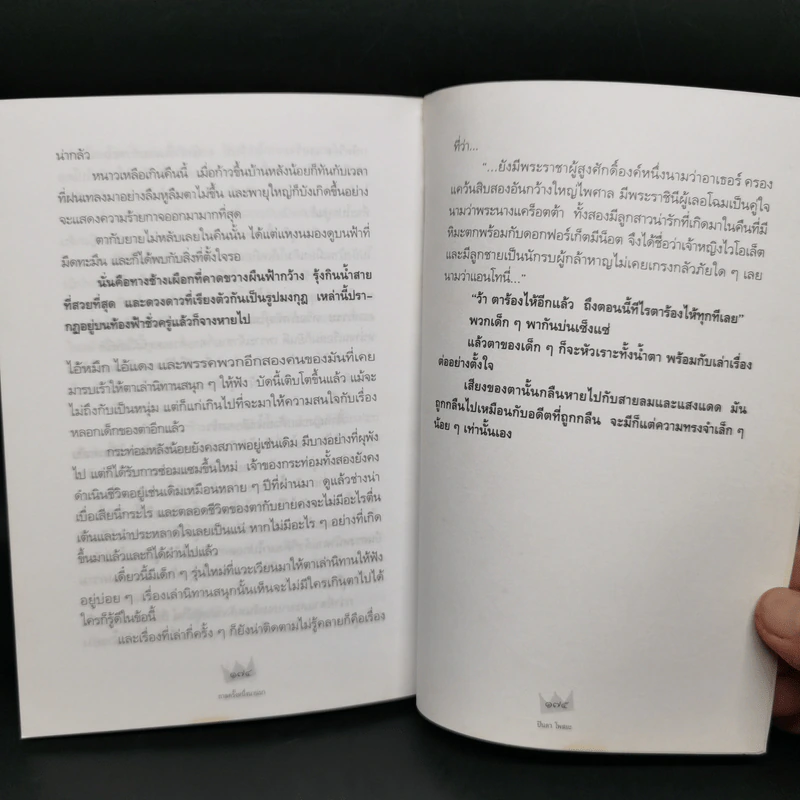 น่ากลัว
หนาวเหลือเกินคืนนี้ เมื่อก้าวขึ้นบ้านหลังน้อยก็ทันกับเวลา
ที่ฝนเทลงมาอย่างลืมหูลืมตาไม่ขึ้น และพายุใหญ่ก็บังเกิดขึ้นอย่าง
จะแสดงความร้ายกาจออกมามากที่สุด
ตากับยายไม่หลับเลยในคืนนั้น ได้แต่แหงนมองดูบนฟ้าที่
มืดทะมึน และก็ได้พบกับสิ่งที่ตั้งใจรอ
นั่นคือทางช้างเผือกที่คาดขวางผืนฟ้ากว้าง รุ้งกินน้ำสาย
ที่สวยที่สุด และดวงดาวที่เรียงตัวกันเป็นรูปมงกุฎ เหล่านี้ปรา-
กฏอยู่บนท้องฟ้าชั่วครู่แล้วก็จางหายไป
ไอ้หมึก ไอ้แดง และพรรคพวกอีกสองคนของมันที่เคย
มารบเร้าให้ตาเล่านิทานสนุก ๆ ให้ฟัง บัดนี้เติบโตขึ้นแล้ว แม้จะ
ไม่ถึงกับเป็นหนุ่ม แต่ก็แก่เกินไปที่จะมาให้ความสนใจกับเรื่อง
หลอกเด็กของตาอีกแล้ว
กระท่อมหลังน้อยยังคงสภาพอยู่เช่นเดิม มีบางอย่างที่ผุพัง
ไป แต่ก็ได้รับการซ่อมแซมขึ้นใหม่ เจ้าของกระท่อมทั้งสองยังคง
ดำเนินชีวิตอยู่เช่นเดิมเหมือนหลาย ๆ ปีที่ผ่านมา ดูแล้วช่างน่า
เบื่อเสียนี่กระไร และตลอดชีวิตของตากับยายคงจะไม่มีอะไรตื่น
เต้นและน่าประหลาดใจเลยเป็นแน่ หากไม่มีอะไร ๆ อย่างที่เกิด
ขึ้นมาแล้วและก็ได้ผ่านไปแล้ว
เดี๋ยวนี้มีเด็ก ๆ รุ่นใหม่ที่แวะเวียนมาให้ตาเล่านิทานให้ฟัง
อยู่บ่อย ๆ เรื่องเล่านิทานสนุกนั้นเห็นจะไม่มีใครเกินตาไปได้
ใครก็รู้ดีในข้อนี้
และเรื่องที่เล่ากี่ครั้ง ๆ ก็ยังน่าติดตามไม่รู้คลายก็คือเรื่อง
๑๗๔
ที่ว่า...
“...ยังมีพระราชาผู้สูงศักดิ์องค์หนึ่งนามว่าอาเธอร์ ครอง
แคว้นสิบสองอันกว้างใหญ่ไพศาล มีพระราชินีผู้เลอโฉมเป็นคู่ใจ
นามว่าพระนางแคร็อตต้า ทั้งสองมีลูกสาวน่ารักที่เกิดมาในคืนที่มี
หิมะตกพร้อมกับดอกฟอร์เก็ตมีน็อต จึงได้ชื่อว่าเจ้าหญิงไวโอเล็ต
และมีลูกชายเป็นนักรบผู้กล้าหาญไม่เคยเกรงกลัวภัยใด ๆ เลย
นามว่าแอนโทนี่...”
“ว้า ตาร้องไห้อีกแล้ว ถึงตอนนี้ทีไรตาร้องไห้ทุกทีเลย”
พวกเด็ก ๆ พากันบ่นเซ็งแซ่
แล้วตาของเด็ก ๆ ก็จะหัวเราะทั้งน้ำตา พร้อมกับเล่าเรื่อง
ต่ออย่างตั้งใจ
เสียงของตานั้นกลืนหายไปกับสายลมและแสงแดด มัน
ถูกกลืนไปเหมือนกับอดีตที่ถูกกลืน จะมีก็แต่ความทรงจำเล็ก ๆ
น้อย ๆ เท่านั้นเอง
๑๗๕
ปิ่นลา